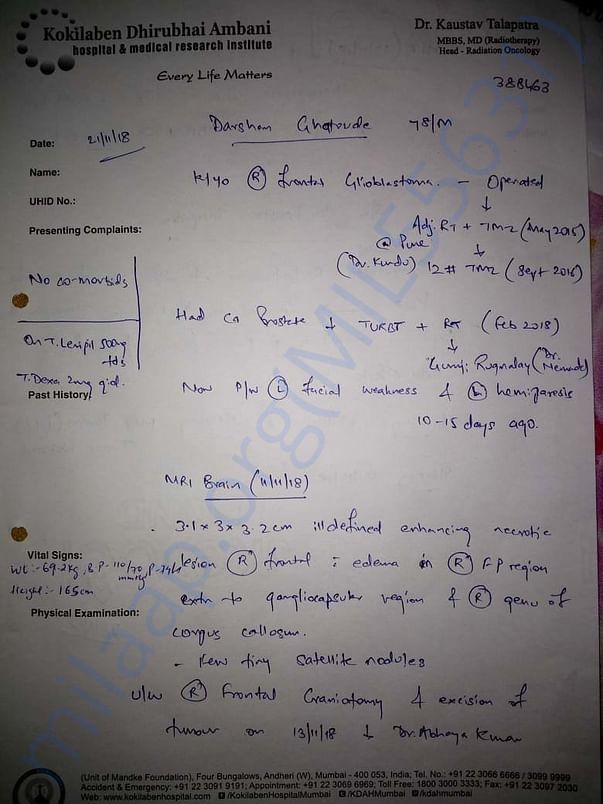 Kokilaben Dhirubhai Ambani
hospital & medical research institute
Every Life Matters
Dr. Kaustav Talapatra
MBBS, MD (Radiotherapy)
Head - Radiation Oncology
388463
Darsham Ghatoude 78/M
Date: 21/11/18
Name:
K/40 (R) frontal Glioblastoma. - Operated
UHID No.:
↓
Presenting Complaints:
Adj. RT + TMZ (May 2015)
@ Pune ↓
(Dr. Kundu) 12# TMZ (Sept 2016)
No co-morbids
Had Ca Prostate ↓ TURBT + RT (Feb 2018)
On T. Levipil 500mg
tds
↓
Guruji Rugnalay (Dr.
T. Dexa 2mg qid.
Past History:
Now P/W (L) facial weakness & (L) hemiparesis
10-15 days ago.
MRI Brain (11/11/18)
- 3.1 x 3 x 3.2 cm illdefined enhancing necrotic
Vital Signs:
Wt:- 69.2kg, B.P- 110/70 mmHg,
lesion (R) frontal c edema in (R) FP region
Height:- 165cm
extn to gangliocapsular region & (R) genu of
Physical Examination:
corpus callosum.
- Few tiny satellite nodules
U/W (R) Frontal Craniotomy & excision of
tumour on 13/11/18 ↓ Dr. Abhaya Kumar
(Unit of Mandke Foundation), Four Bungalows, Andheri (W), Mumbai - 400 053, India; Tel. No.: +91 22 3066 6666 / 3099 9999
Accident & Emergency: +91 22 3091 9191; Appointment: +91 22 3069 6969; Toll Free: 1800 3000 3333; Fax: +91 22 3097 2030
Web: www.kokilabenhospital.com /KokilabenHospitalMumbai /KDAHMumbai /kdahmumbai